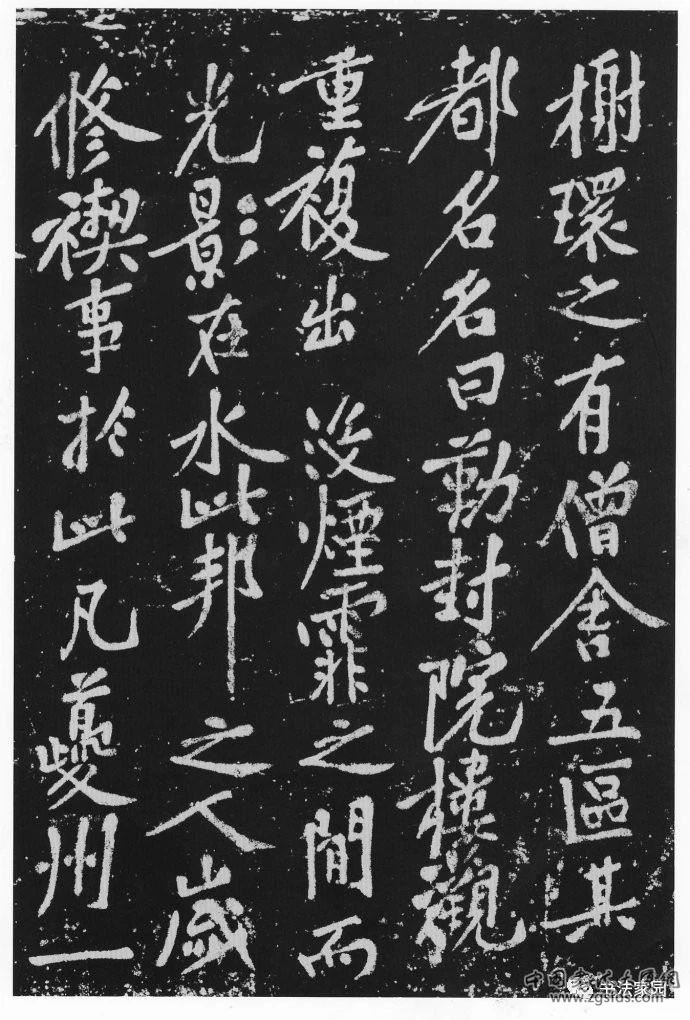 榭環之有僧舍五區其
都名名曰勳封院樓觀
重複出沒煙霏之間而
光影在水此邦之人歲
修禊事於此凡夔州一
书法聚园
www.zgsfds.com